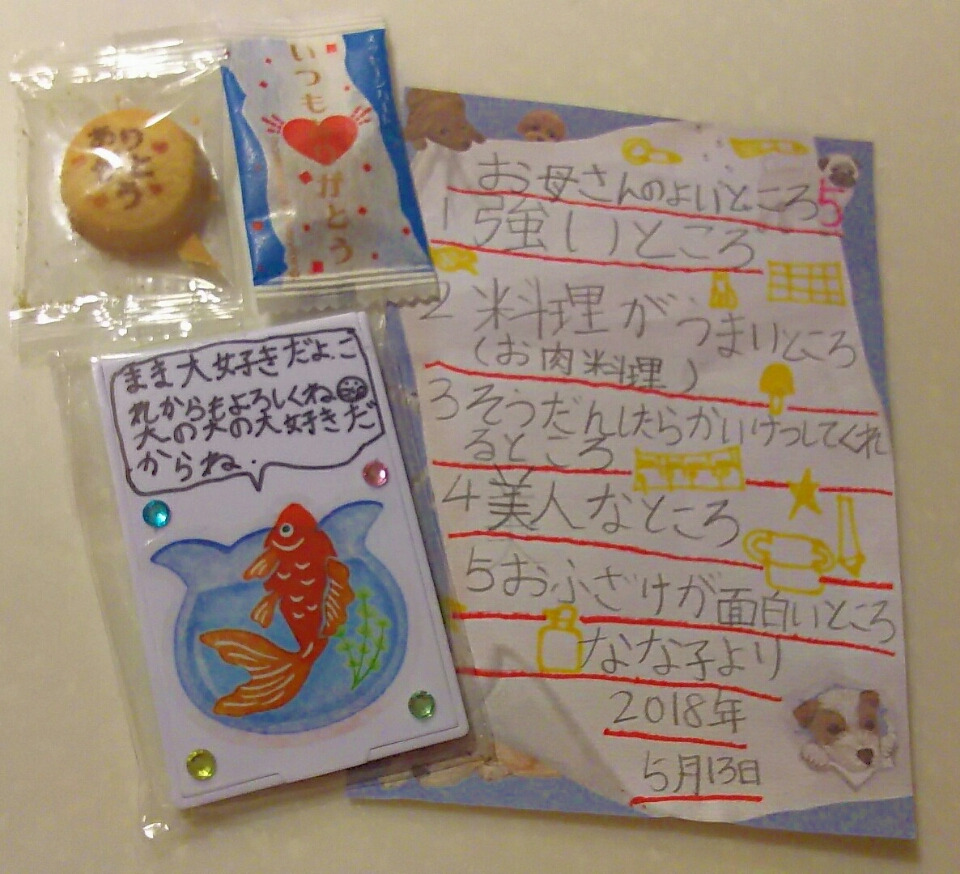 ありがとう
いつもありがとう
まま大好きだよ.こ
れからもよろしくね
犬の犬の大好きだ
からね.
お母さんのよいところ5
1 強いところ
2 料理がうまいところ
(お肉料理)
3 そうだんしたらかいけつしてくれ
るところ
4 美人なところ
5 おふざけが面白いところ
なな子より
2018年
5月13日